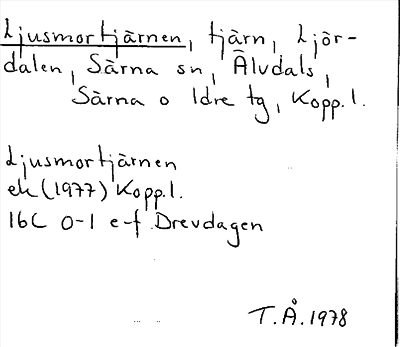 Ljusmortjärnen, tjärn, Ljör-
dalen, Särna sn, Älvdals,
Särna o Idre tg, Kopp.l.
Ljusmortjärnen
ek (1977) Kopp.l.
16C 0-1 e-f Drevdagen
T.Å.1978